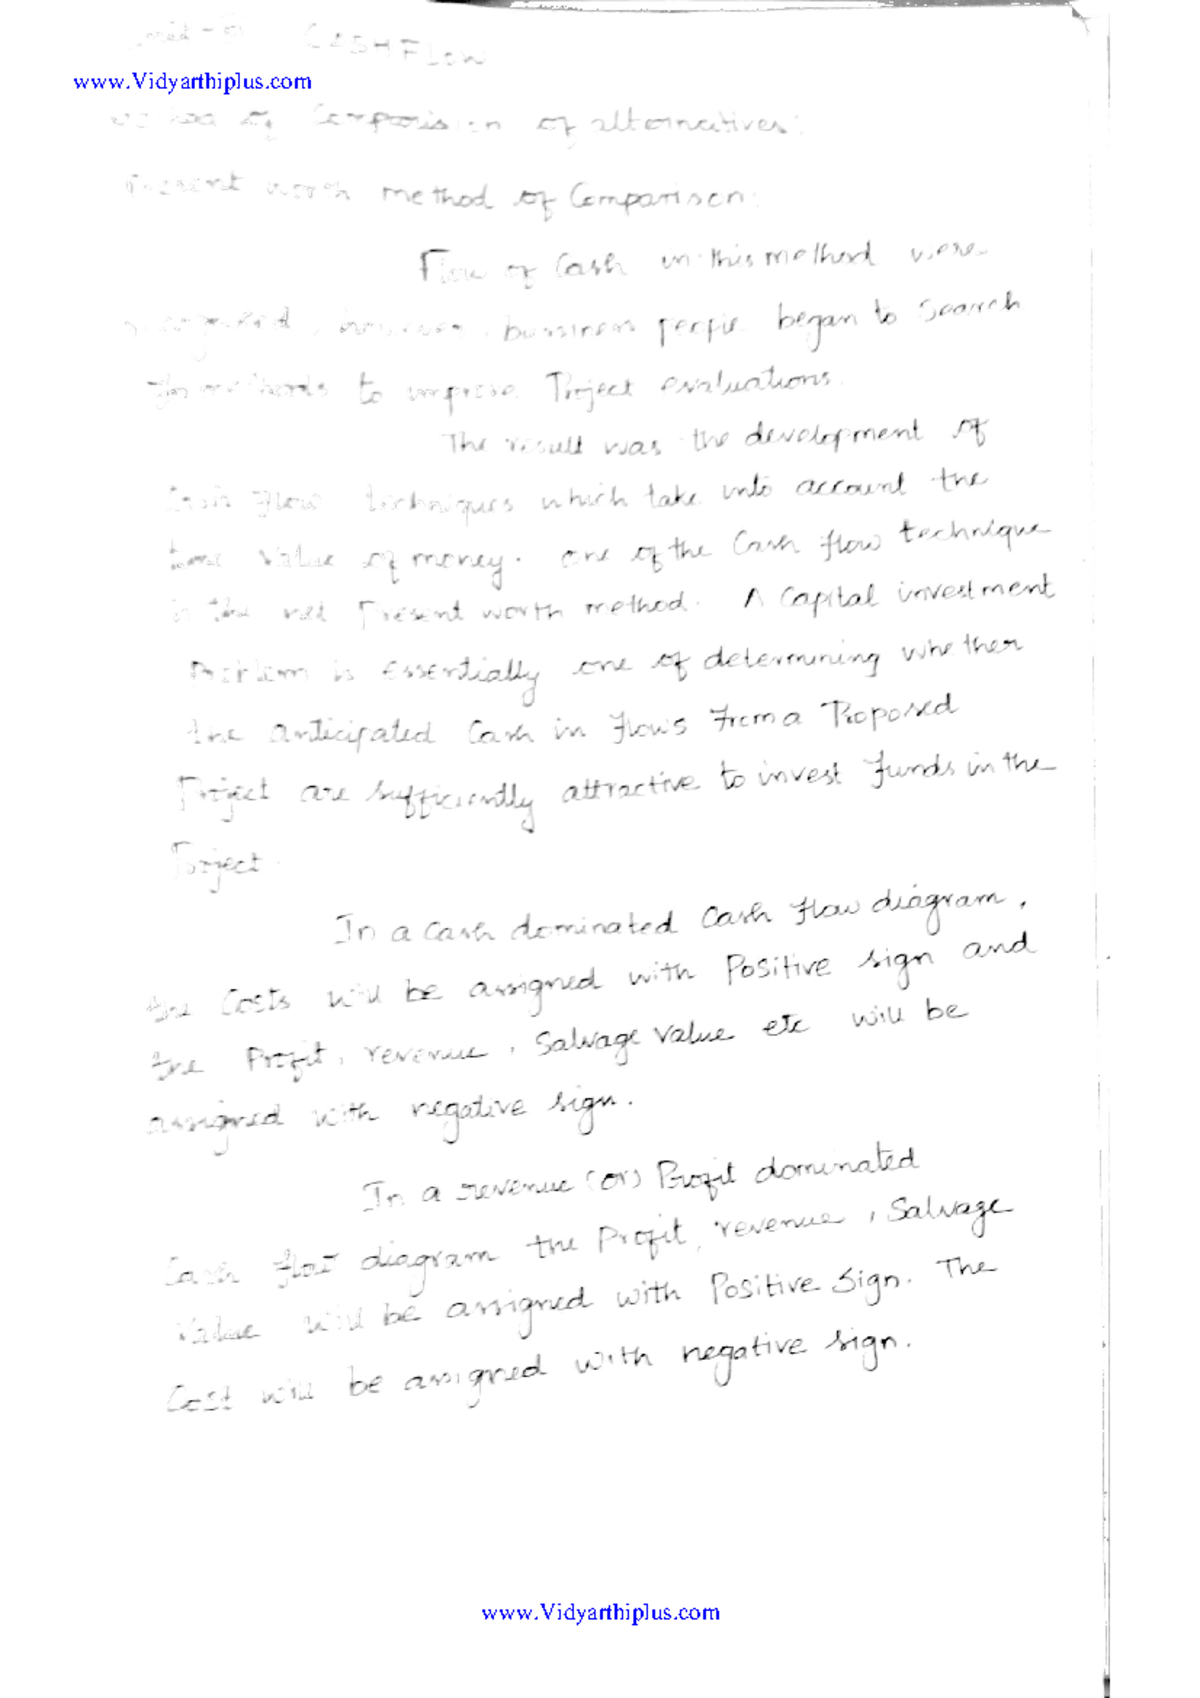 CASH FLOW
www.Vidyarthiplus.com
of Comparision of alternatives:
Present worth method of Comparison:
Flow of Cash in this method were
recognized, however, bussiness people began to Search
methods to improve Project evaluations.
The result was the development of
Cash Flow techniques which take into account the
time value of money. One of the Cash flow technique
is the net Present worth method. A Capital investment
Problem is essentially one of determining whether
the anticipated Cash in flows From a Proposed
Project are sufficiently attractive to invest funds in the
Project.
In a Cash dominated Cash flow diagram,
the Costs will be assigned with Positive sign and
the Profit, revenue, Salvage value etc will be
assigned with negative sign.
In a revenue (or) Profit dominated
Cash flow diagram the Profit, revenue, Salvage
Value will be assigned with Positive Sign. The
Cost will be assigned with negative sign.
www.Vidyarthiplus.com